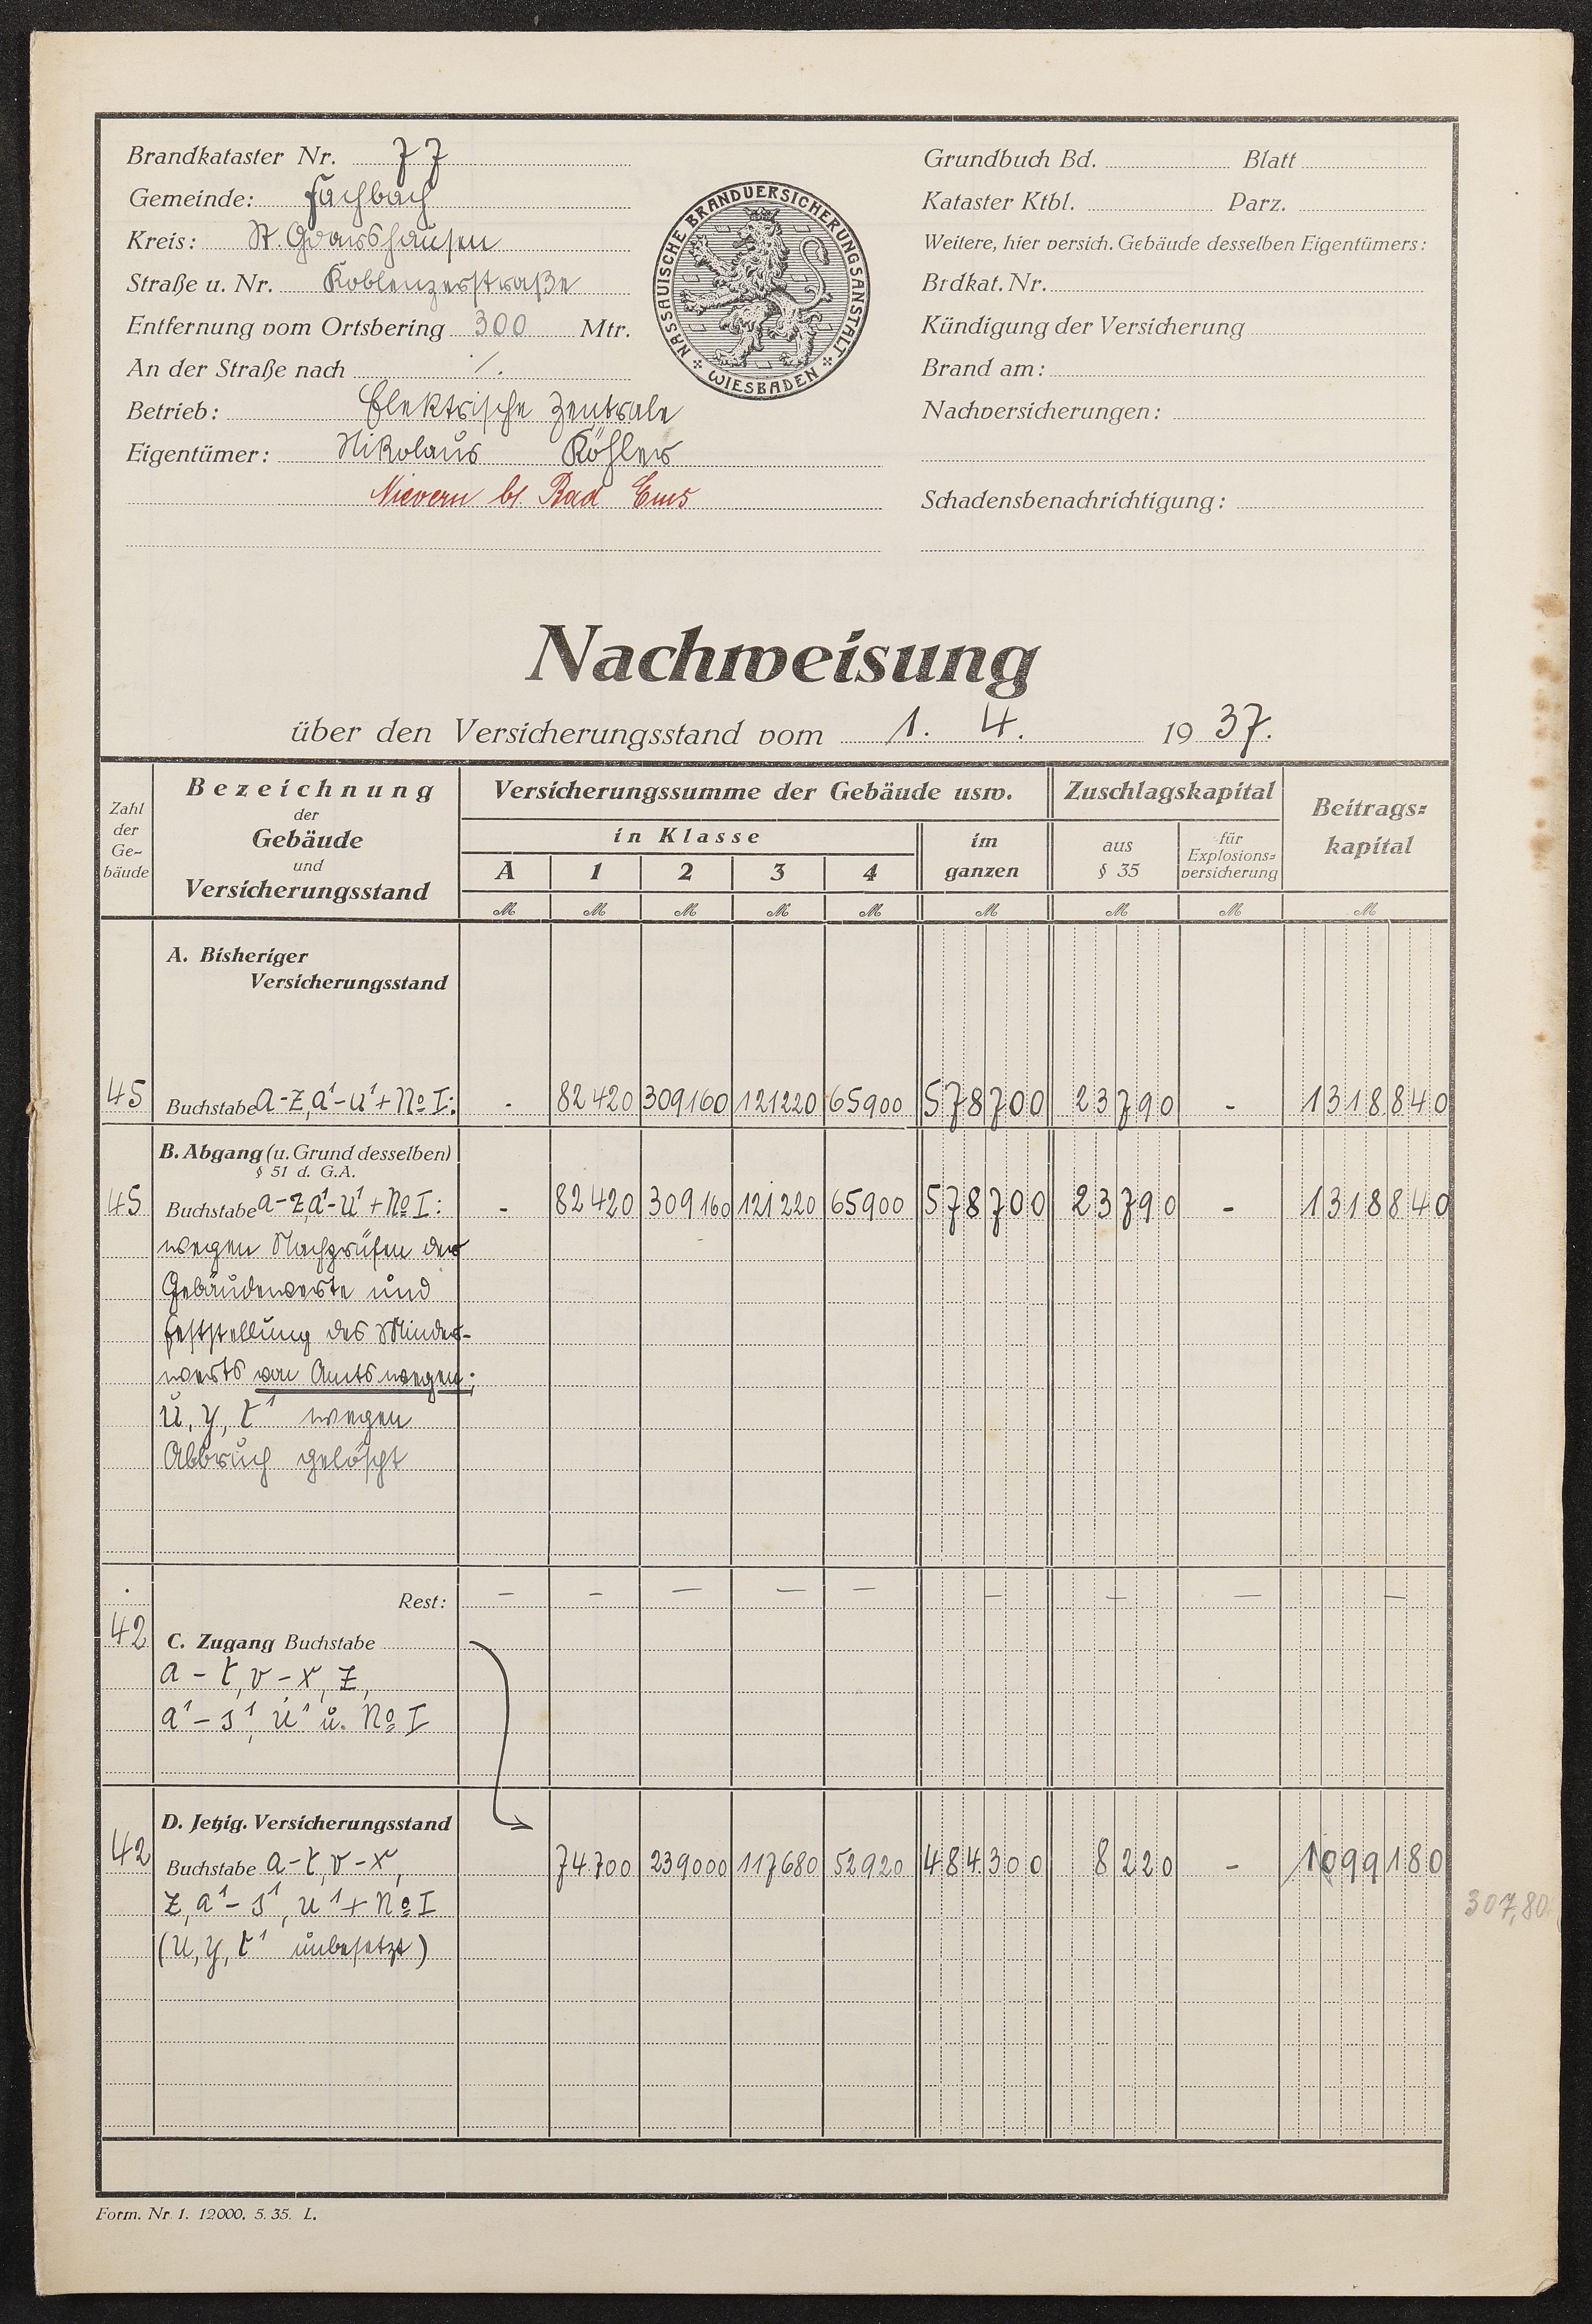 Brandkataster Nr. 77
Gemeinde: Fachbach
Kreis: St. Goarshausen
Straße u. Nr. Koblenzerstraße
Entfernung vom Ortsbering 300 Mtr.
An der Straße nach ./.
Betrieb: Elektrische Zentrale
Eigentümer: Nikolaus Köhler
Nievern b/ Bad Ems
NASSAUISCHE BRANDVERSICHERUNGSANSTALT
WIESBADEN
Grundbuch Bd. Blatt
Kataster Ktbl. Parz.
Weitere, hier versich. Gebäude desselben Eigentümers:
Brdkat. Nr.
Kündigung der Versicherung
Brand am:
Nachversicherungen:
Schadensbenachrichtigung:
Nachweisung
über den Versicherungsstand vom 1. 4. 1937.
Zahl der Ge-bäude
Bezeichnung
der
Gebäude
und
Versicherungsstand
Versicherungssumme der Gebäude usw.
in Klasse
A 1 2 3 4
im ganzen
Zuschlagskapital
aus § 35
für Explosions=versicherung
Beitrags=kapital
M M M M M M M M M
A. Bisheriger
Versicherungsstand
45 Buchstabe a-z, a¹-u¹ + No I: - 82420 309160 121220 65900 578700 23790 - 1318840
B. Abgang (u. Grund desselben)
§ 51 d. G.A.
45 Buchstabe a-z, a¹-u¹ + No I: - 82420 309160 121220 65900 578700 23790 - 1318840
wegen Nachprüfen der
Gebäudewerte und
Feststellung des Minder-
werts von Amtswegen;
u, y, t¹ wegen
Abbruch gelöscht
Rest: - - - - - - - - -
42 C. Zugang Buchstabe
a - t, v - x, z,
a¹ - s¹, u¹ u. No I
D. Jetzig. Versicherungsstand
42 Buchstabe a-t, v-x, 74700 239000 117680 52920 484300 8220 - 1099180
z, a¹ - s¹, u¹ + No I
307,80
(u, y, t¹ unbesetzt)
Form. Nr. 1. 12000. 5. 35. L.